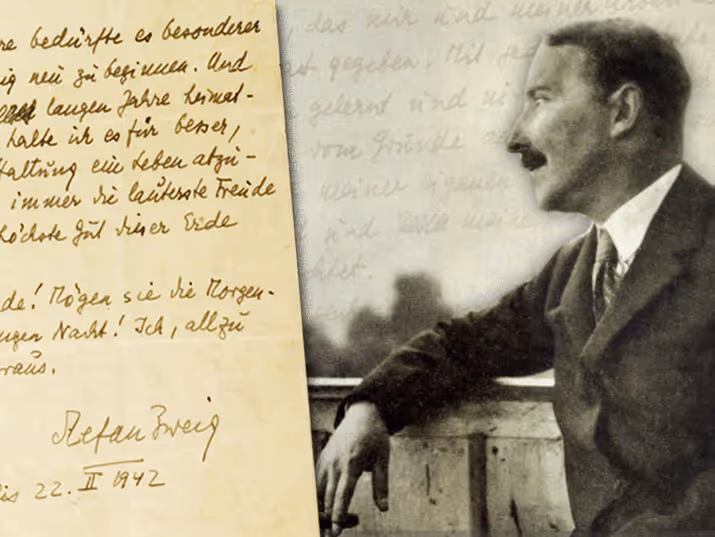 re bedürfte es besonderer
ig neu zu beginnen. Und
langen Jahre heimat-
halte ich es für besser,
altung ein Leben abzu-
immer die lauterste Freude
höchste Gut dieser Erde
de! Mögen sie die Morgen-
ngen Nacht! Ich, allzu
raus.
Stefan Zweig
is 22. II 1942
das mir und meiner
gegeben. Mit
gelernt und
vom Grunde
meiner eigenen
und meine
chtet.